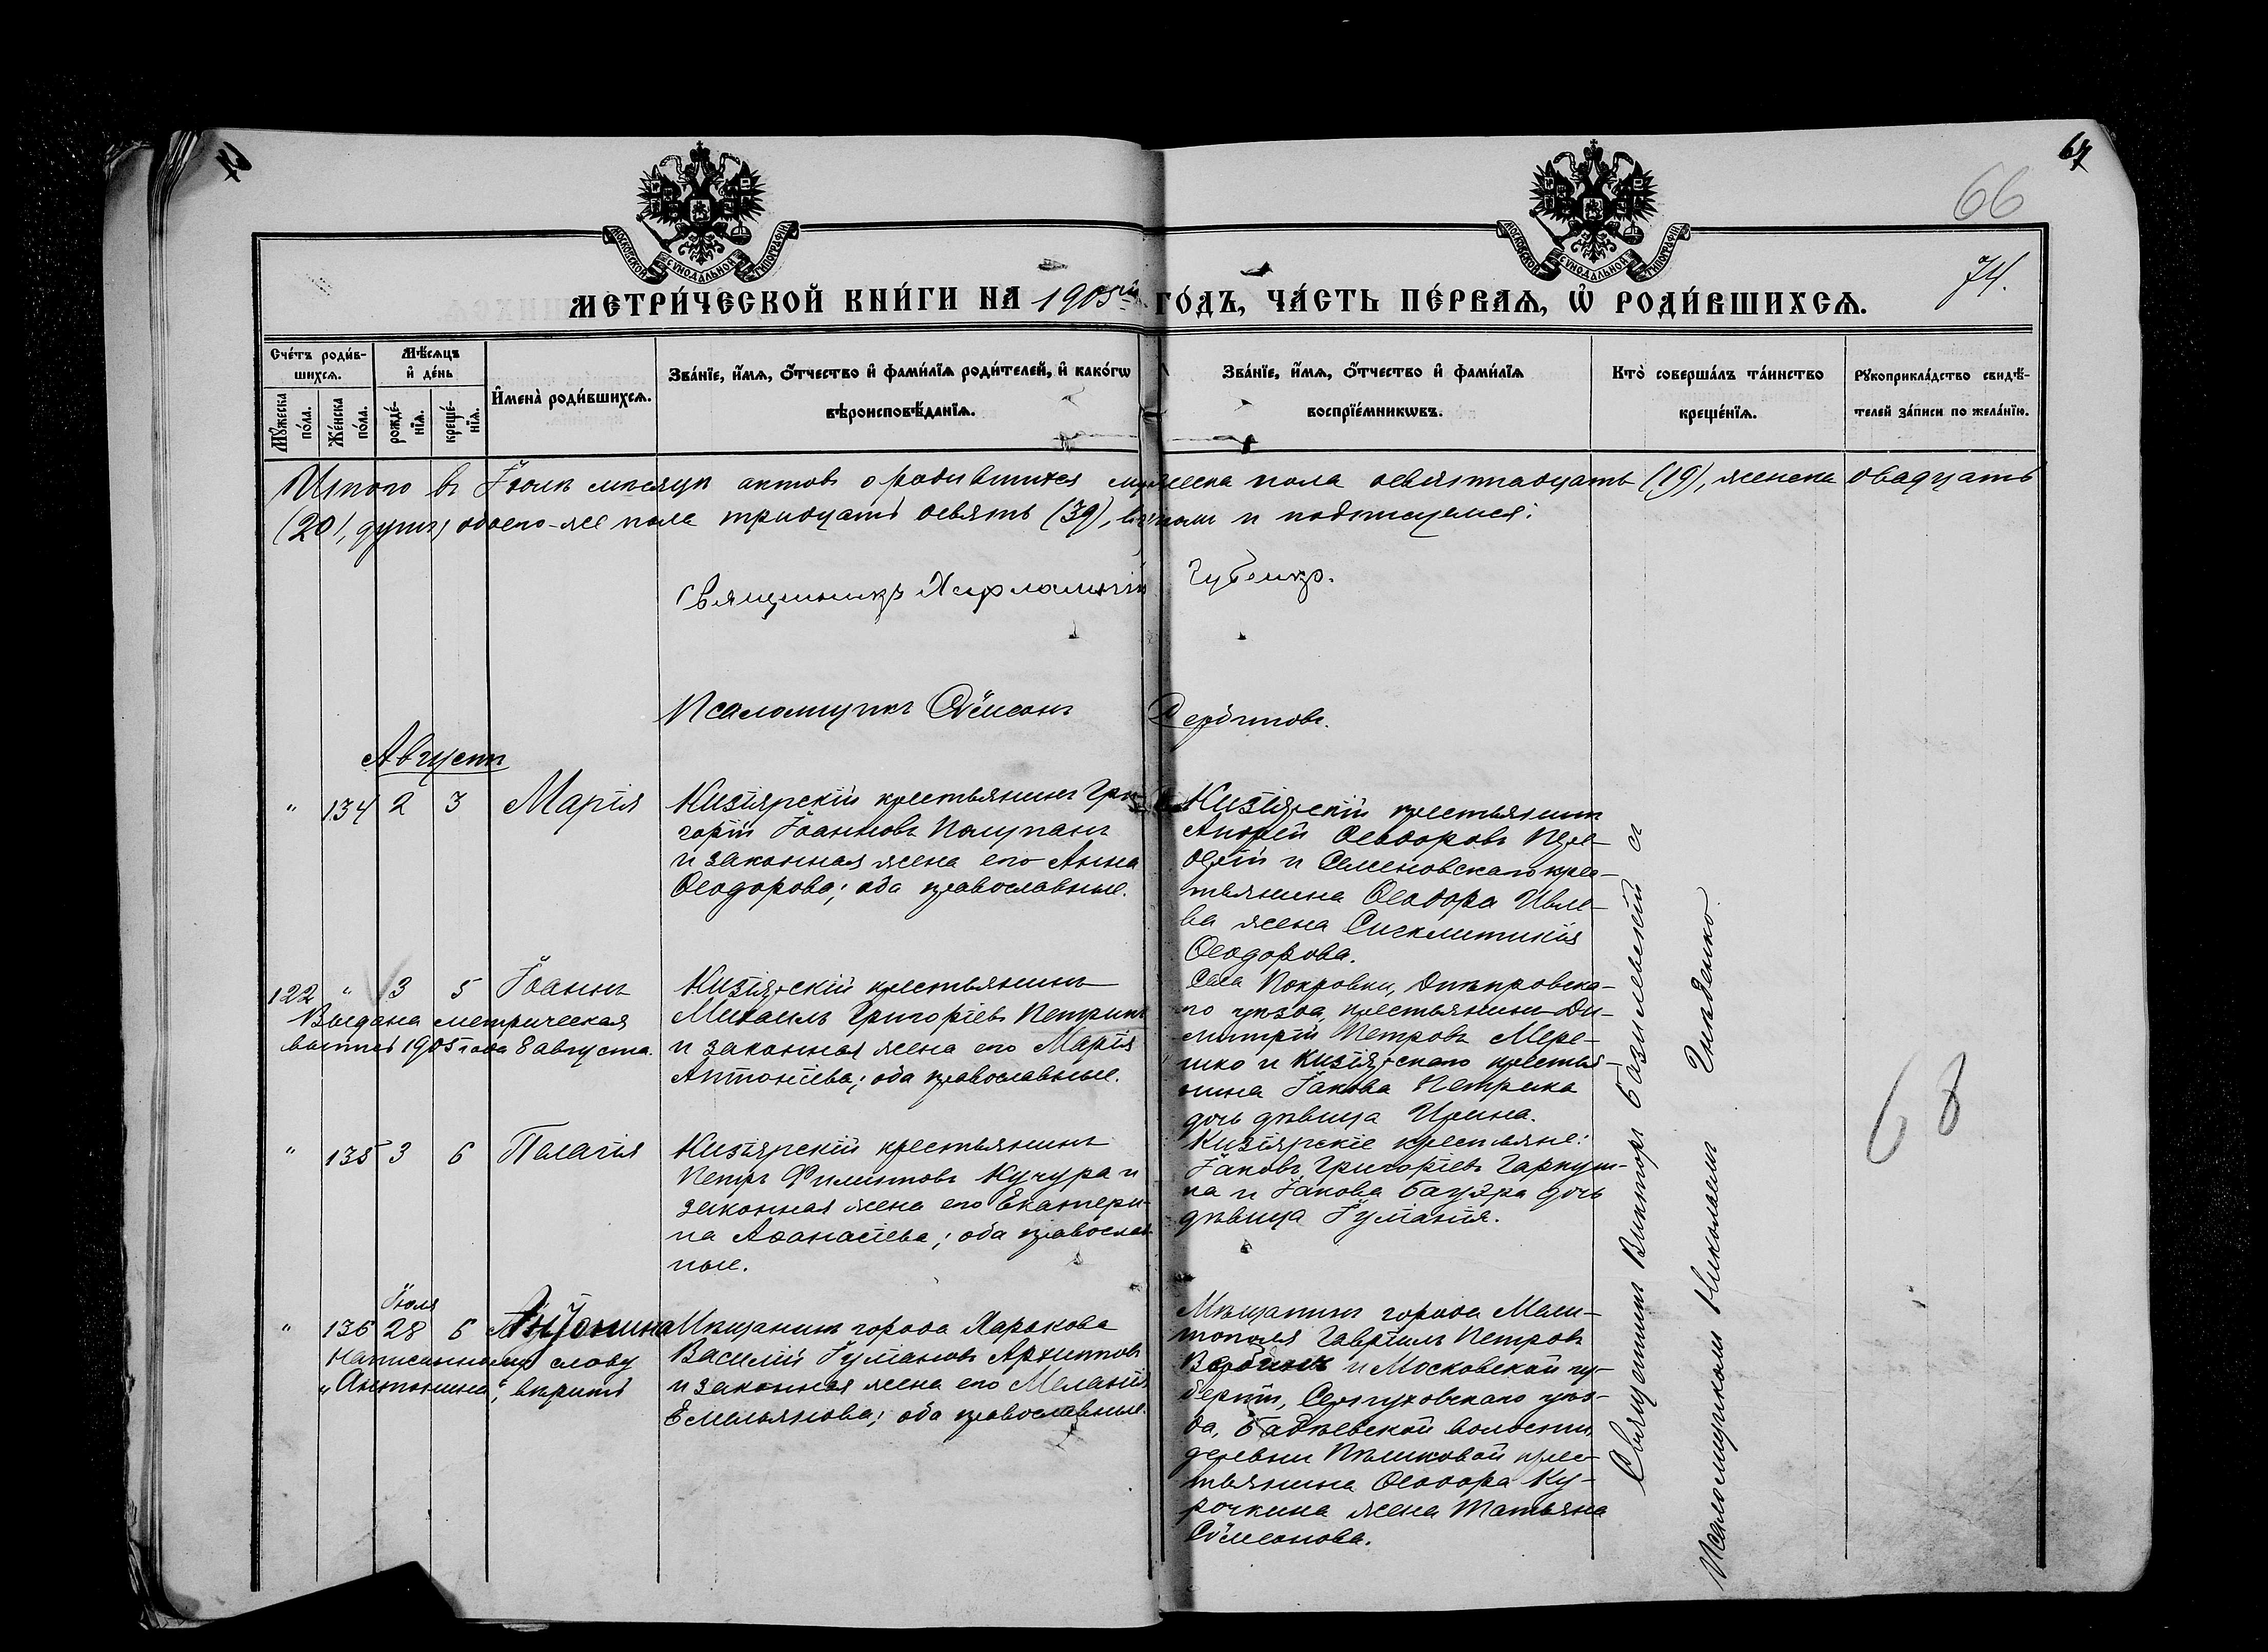 67
66
74.
МОСКОВСКОЙ СѴНОДАЛЬНОЙ ТИПОГРАФІИ
МОСКОВСКОЙ СѴНОДАЛЬНОЙ ТИПОГРАФІИ
МЕТРИ́ЧЕСКОЙ КНИ́ГИ НА 1905й ГО́ДЪ, ЧА́СТЬ ПЕ́РВАѦ, Ѡ҆ РОДИ́ВШИХСѦ.
Сче́тъ роди́в-
шихсѧ.
Мѣ́сѧцъ
и҆ де́нь
Му́жеска по́ла.
Же́нска по́ла.
рожде́-
нїѧ.
креще́-
нїѧ.
И҆мена̀ роди́вшихсѧ.
Зва́нїе, и҆́мѧ, о҆́тчество и҆ фами́лїѧ роди́телей, и҆ како́гѡ
вѣроисповѣ́данїѧ.
Зва́нїе, и҆́мѧ, о҆́тчество и҆ фами́лїѧ
воспрїе́мникѡвъ.
Кто̀ соверша́лъ та́инство
креще́нїѧ.
Рꙋкоприкла́дство свидѣ́-
телей за́писи по жела́нїю.
Итого въ Іюлѣ мѣсяцѣ актовъ о родившихся мужеска пола девятнадцать (19), женска двадцать
(20), душъ обоего-же пола тридцать девять (39), въ чемъ и подписуемся:
Священникъ Харлампій Губенко.
Псаломщикъ Сѵмеонъ
Августъ
" 134 2 3 Марія
Кизіярскій крестьянинъ Гри-
горій Іоанновъ Полупанъ
и законная жена его Анна
Ѳеодорова; оба православные.
Кизіярскій крестьянинъ
Андрей Ѳеодоровъ
и Семеновскаго крес-
тьянина Ѳеодора Ивле-
ва жена Сигклитикія
Ѳеодорова.
122 " 3 5 Іоаннъ
Выдана метрическая
выпись 1905 года 8 августа.
Кизіярскій крестьянинъ
Михаилъ Григоріевъ Петрикъ
и законная жена его Марія
Антоніева; оба православные.
Села Покровки, Днѣпровска-
го уѣзда, крестьянинъ Ди-
митрій Петровъ Мере-
шко и Кизіярскаго крестья-
нина Іакова Петрика
дочь дѣвица Ирина.
" 135 3 6 Пелагія
Кизіярскій крестьянинъ
Петръ Филиповъ Кучура и
законная жена его Екатери-
на Аѳанасіева; оба православ-
ные.
Кизіярскіе крестьяне:
Іаковъ Григоріевъ Гаркуш-
ка и Іакова Бауэра дочь
дѣвица Іуліанія.
Іюля
" 136 28 6 Антонина
Написанному слову
"Антонина", вѣрить
Мѣщанинъ города Харькова
Василій Іуліановъ Архиповъ
и законная жена его Меланія
Емельянова; оба православные.
Мѣщанинъ города Мели-
тополя Гавріилъ Петровъ
и Московской гу-
берніи, Серпуховскаго уѣз-
да, Бадѣевской волости,
деревни Пѣшковой крес-
тьянина Ѳеодора Ку-
рочкина жена Татьяна
Сѵмеонова.
Священникъ Викторъ Базилевскій съ
Псаломщикомъ Николаемъ Гнѣденко.
68